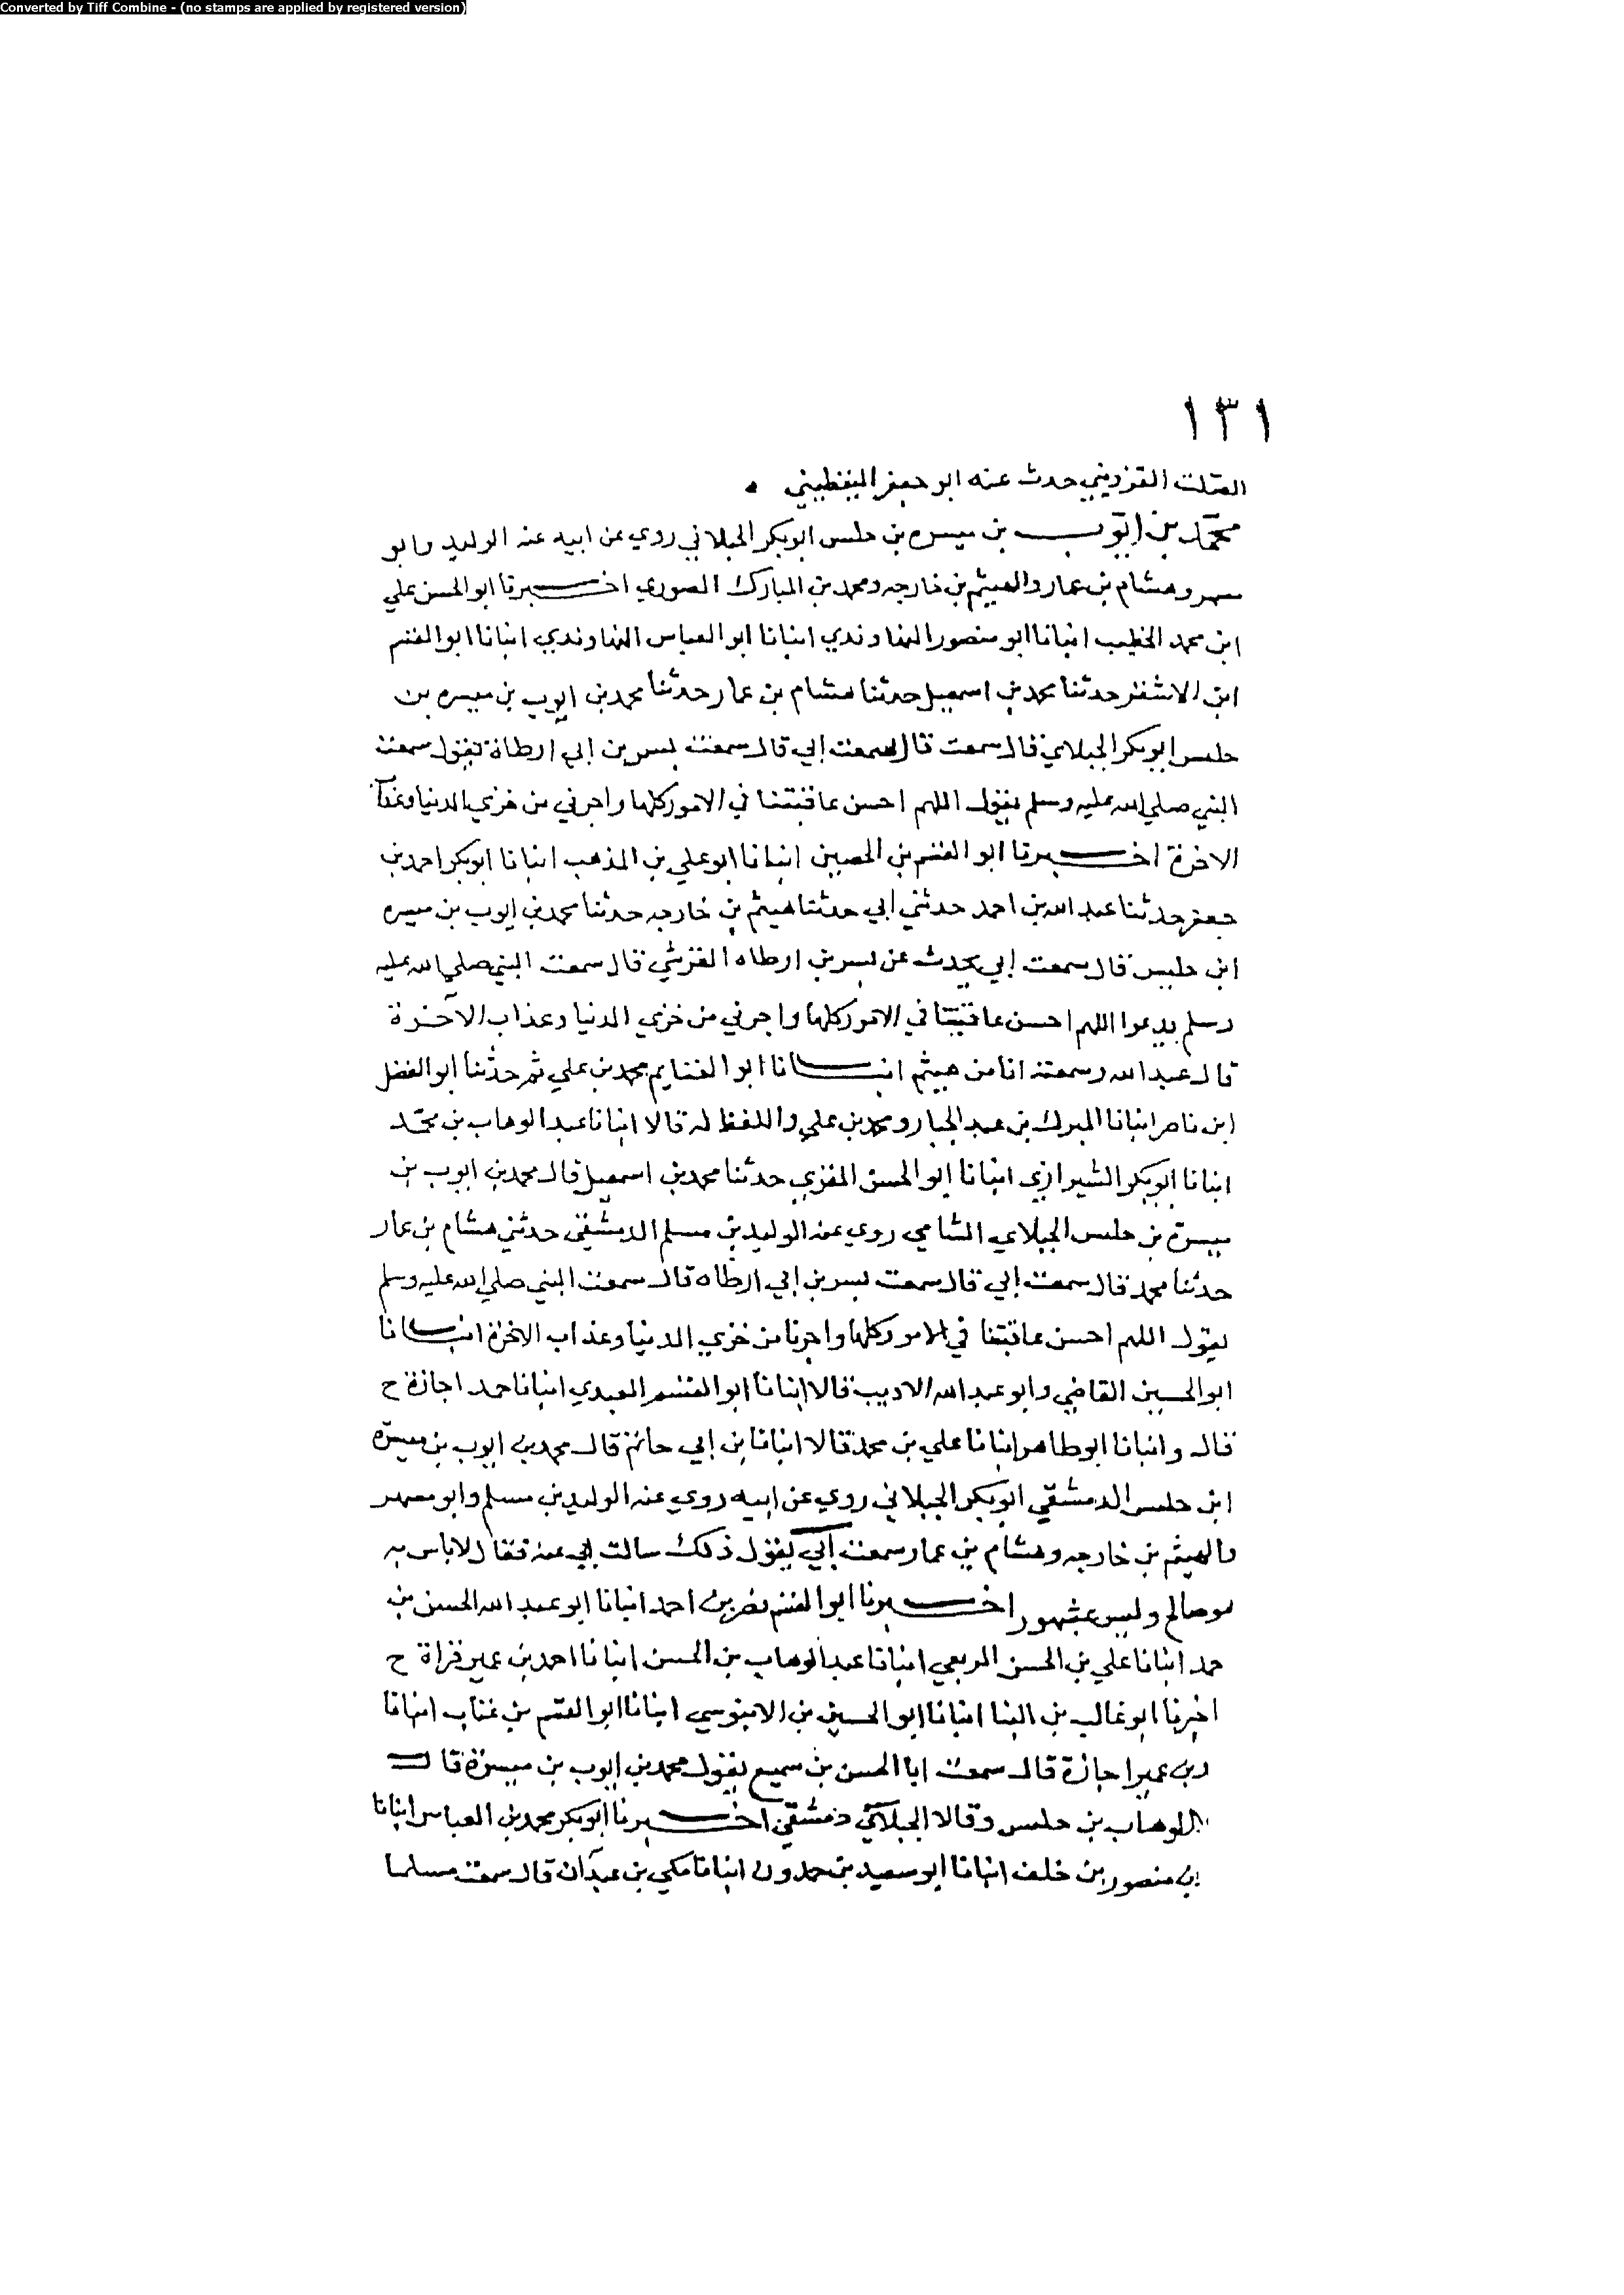 Converted by Tiff Combine - (no stamps are applied by registered version)
١٣١
الصلت القزويني حدث عنه ابو جعفر اليقطيني
محمد بن ايوب بن ميسره بن حلبس ابو بكر الجبلاني روي عن ابيه عنه الوليد وابو
مسهر وهشام بن عمار والهيثم بن خارجه ومحمد بن المبارك الصوري اخبرنا ابو الحسن علي
ابن محمد الخطيب انبانا ابو منصور النهاوندي انبانا ابو العباس النهاوندي انبانا ابو القسم
ابن الاشقر حدثنا محمد بن اسمعيل حدثنا هشام بن عمار حدثنا محمد بن ايوب بن ميسره بن
حلبس ابو بكر الجبلاني قال سمعت قال سمعت ابي قال سمعت بسر بن ابي ارطاة يقول سمعت
النبي صلي الله عليه وسلم يقول اللهم احسن عاقبتنا في الامور كلها واجرني من خزي الدنيا وعذاب
الاخرة اخبرنا ابو القسم بن الحصين انبانا ابو علي بن المذهب انبانا ابو بكر احمد بن
جعفر حدثنا عبد الله بن احمد حدثني ابي حدثنا هيثم بن خارجه حدثنا محمد بن ايوب بن ميسره
ابن حلبس قال سمعت ابي يحدث عن بسر بن ارطاه القرشي قال سمعت النبي صلي الله عليه
وسلم يدعوا اللهم احسن عاقبتنا في الامور كلها واجرني من خزي الدنيا وعذاب الآخرة
قال عبد الله وسمعته انا من هيثم انبانا ابو الغنايم محمد بن علي ثم حدثنا ابو الفضل
ابن ناصر انبانا المبرك بن عبد الجبار ومحمد بن علي واللفظ له قالا انبانا عبد الوهاب بن محمد
انبانا ابو بكر الشيرازي انبانا ابو الحسن المقري حدثنا محمد بن اسمعيل قال محمد بن ايوب بن
ميسرة بن حلبس الجبلاي الشامي روي عنه الوليد بن مسلم الدمشقي حدثني هشام بن عمار
حدثنا محمد قال سمعت ابي قال سمعت بسر بن ابي ارطاه قال سمعت النبي صلي الله عليه وسلم
يقول اللهم احسن عاقبتنا في الامور كلها واجرنا من خزي الدنيا وعذاب الاخرة انبانا
ابو الحسين القاضي وابو عبد الله الاديب قالا انبانا ابو القسم العبدي انبانا حمد اجازة ح
قال وانبانا ابو طاهر انبانا علي بن محمد قالا انبانا بن ابي حاتم قال محمد بن ايوب بن ميسره
ابن حلبس الدمشقي ابو بكر الجبلاني روي عن ابيه روي عنه الوليد بن مسلم وابو مسهر
والهيثم بن خارجه وهشام بن عمار سمعت ابي يقول ذلك سالت ابي عنه فقال لا باس به
هو صالح وليس بمشهور اخبرنا ابو القسم نصر بن احمد انبانا ابو عبد الله الحسن بن
حمد انبانا علي بن الحسن الربعي انبانا عبد الوهاب بن الحسن انبانا احمد بن عمير قراة ح
اخبرنا ابو غالب بن البنا انبانا ابو الحسين بن الابنوسي انبانا ابو القسم بن عتاب انبانا
بن عمير اجازة قال سمعت ابا الحسن بن سميع يقول محمد بن ايوب بن ميسرة قال
الوهاب بن حلبس وقالا الجبلاني دمشقي اخبرنا ابو بكر محمد بن العباس انبانا
بن منصور بن خلف انبانا ابو سعيد بن حمدون انبانا مكي بن عبدان قال سمعت مسلما